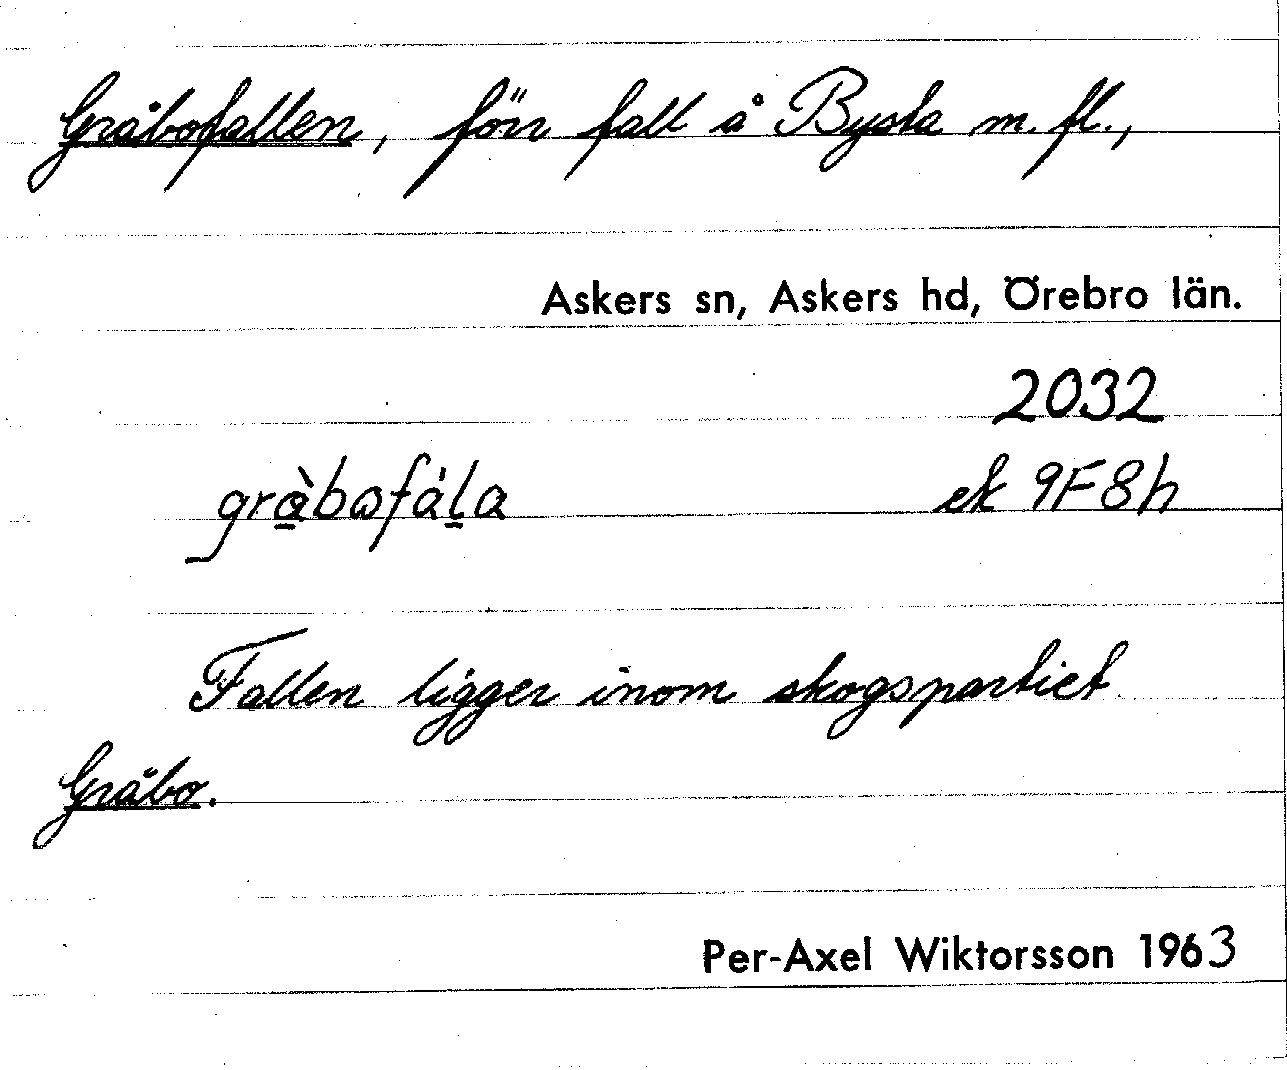 Gråbofallen, förr fall å Bysta m. fl.,
Askers sn, Askers hd, Örebro län.
2032
ek 9F8h
Fallen ligger inom skogspartiet
Gråbo.
Per-Axel Wiktorsson 1963